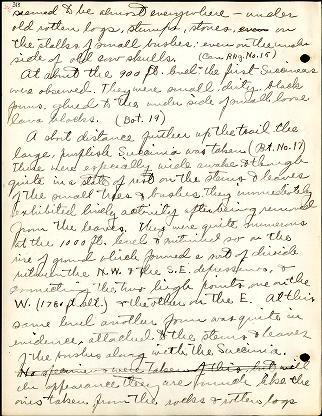 seemed to be almost everywhere - under
old rotten logs, stumps, stones, even on
the stalks of small bushes, even on the under
side of old cow skulls. (Can. Rhy. No. 15)
At about the 900 ft. level the first Succineas
was observed. They were small, dirty, black
forms, glued to the under side of small loose
lava blocks. (Bot. 19)
A short distance further up the trail the
large, purplish Succinia was taken (Bot. No. 17)
These were especially wide awake & though
quite in a state of rest on the stems & leaves
of the small trees & bushes, they immediately
exhibited lively activity after being removed
from the leaves. They were quite numerous
at the 1000 ft. level & continued so on the
rise of ground which formed a sort of divide
between the N.W. & the S.E. depressions, &
connecting the two high points, one on the
W. (1760 ft. alt.) & the other on the E. At this
same level another form was quite in
evidence, attached to the stems & leaves
of the bushes along with the Succinia.
No specimens were taken of this, but
in appearance they are much like the
ones taken from the rocks & rotten logs